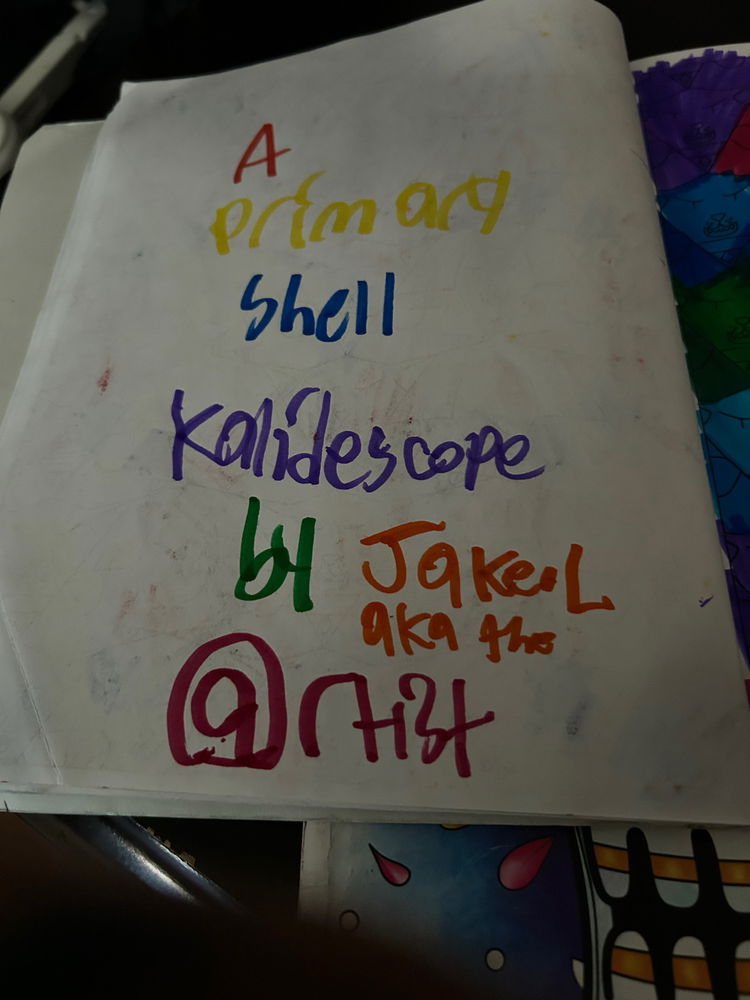 A
Primary
Shell
Kalidescope
by Jake.L
aka the
@rtist